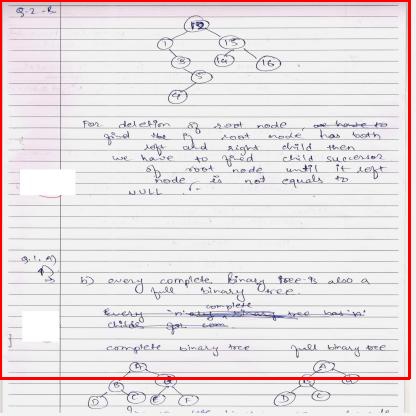 Q-2-
1 15
3 16
5
4
For deletion of root node,
find if root node has both
left and right child then
we have to find child successor
of root node until it left
node is not equals to
NULL.
Q.1. A)
b) every complete Binary tree is also a
full binary tree.
complete
Every tree has
childs
complete binary tree full binary tree
A A
B
D C E F D C